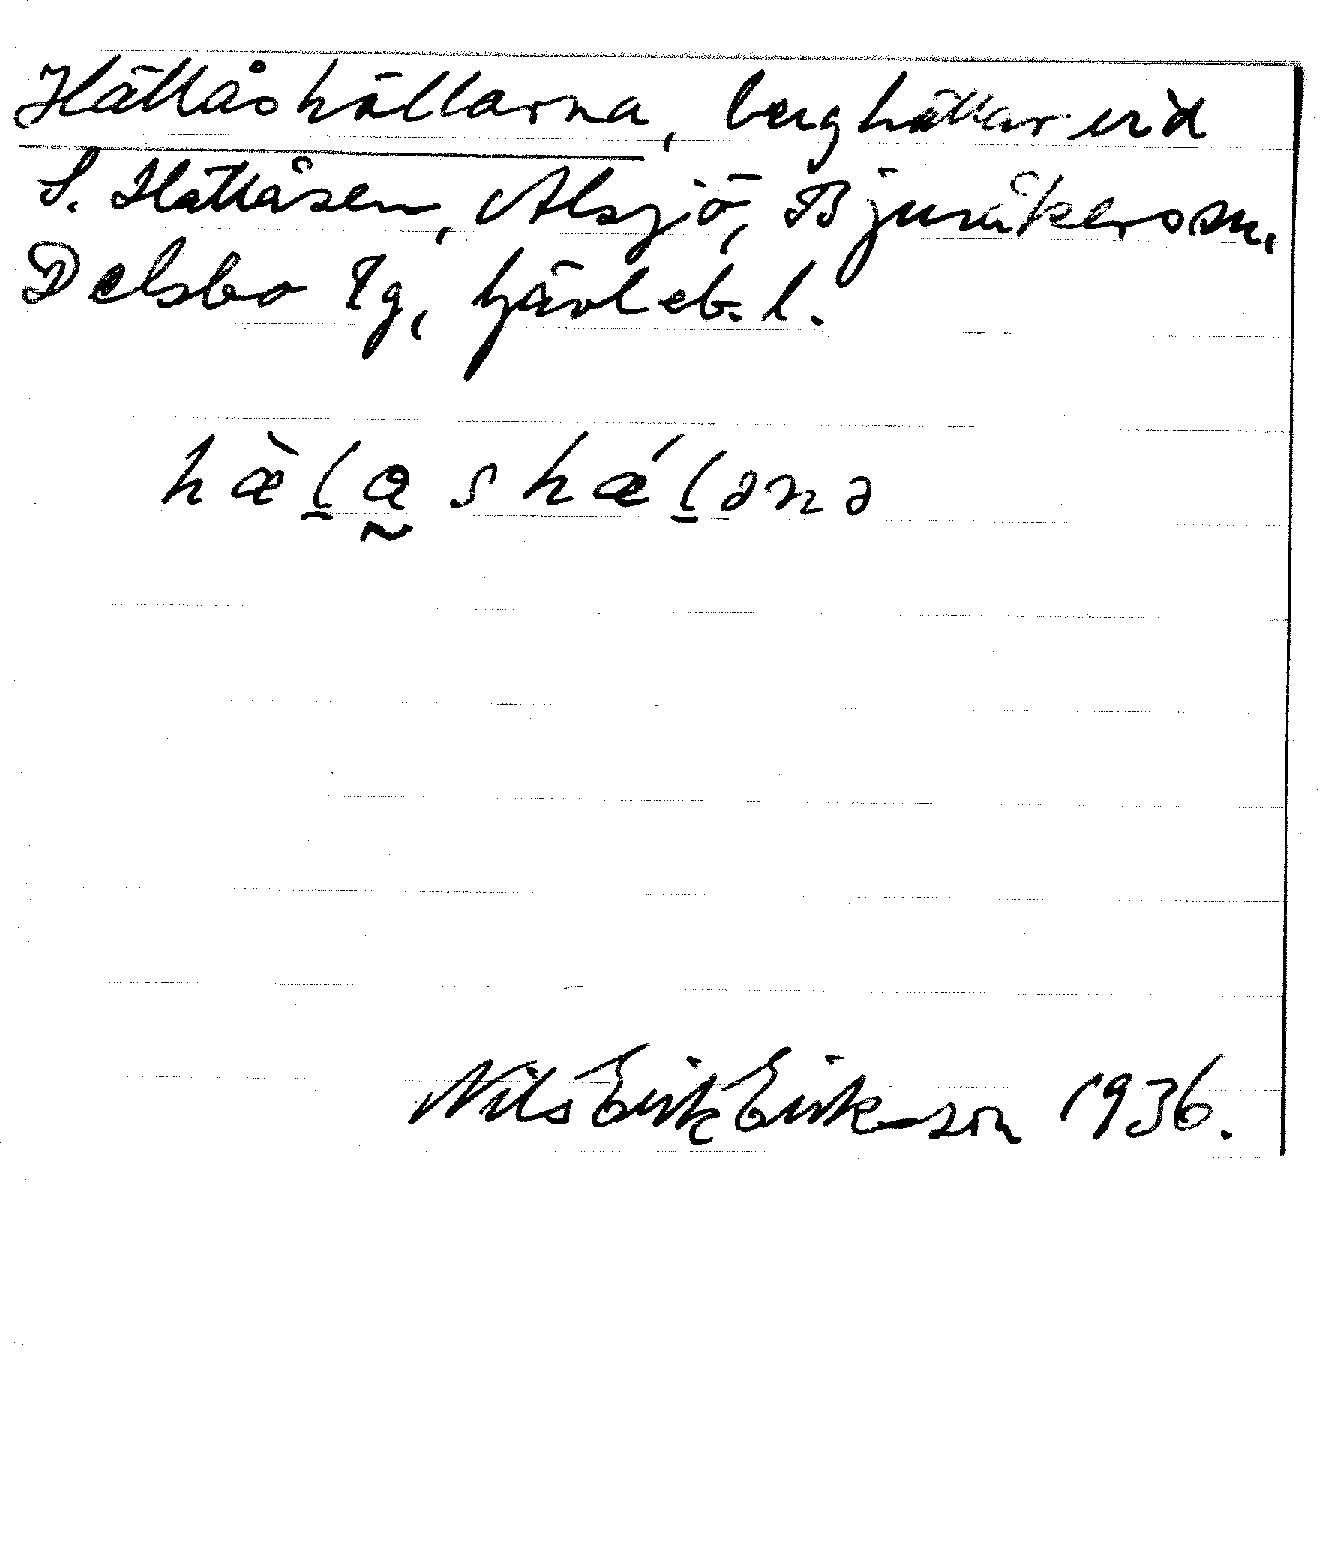 Hällåshällarna, berghällar vid
S. Hällåsen, Alsjö, Bjuråkers sn.
Delsbo tg, Gävleb. l.
hæ̀l̠a̰shǽl̠ənə
Nils Erik Eriksson 1936.